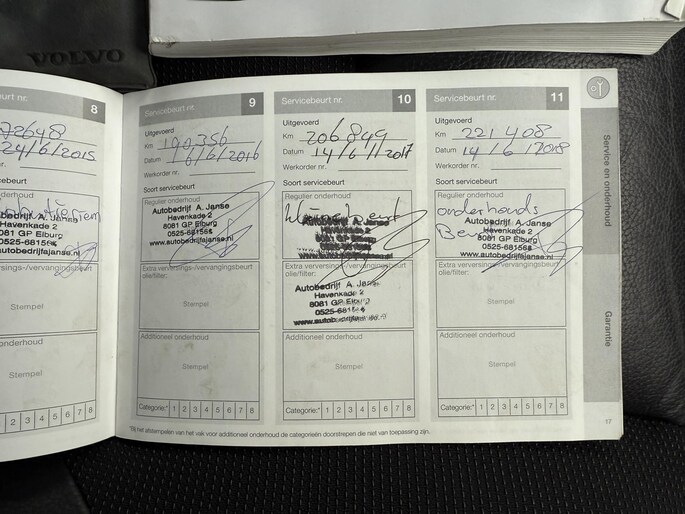 VOLVO
eurt nr. 8
72648
24/6/2015
nr.
cebeurt
onderhoud
A. Janse
Havenkade 2
8081 GP Elburg
0525-681565
autobedrijfajanse.nl
versings-/vervangingsbeurt
Stempel
onderhoud
Stempel
2 3 4 5 6 7 8
Servicebeurt nr. 9
Uitgevoerd
Km 190356
Datum 16/6/2016
Werkorder nr.
Soort servicebeurt
Regulier onderhoud
Autobedrijf A. Janse
Havenkade 2
8081 GP Elburg
0525-681565
www.autobedrijfajanse.nl
Extra verversings-/vervangingsbeurt
olie/filter:
Stempel
Additioneel onderhoud
Stempel
Categorie:* 1 2 3 4 5 6 7 8
Servicebeurt nr. 10
Uitgevoerd
Km 206849
Datum 14/6/2017
Werkorder nr.
Soort servicebeurt
Regulier onderhoud
beurt
Extra verversings-/vervangingsbeurt
olie/filter:
Autobedrijf A. Janse
Havenkade 2
8081 GP Elburg
0525-681565
Additioneel onderhoud
Stempel
Categorie:* 1 2 3 4 5 6 7 8
Servicebeurt nr. 11
Uitgevoerd
Km 221408
Datum 14/6/2018
Werkorder nr.
Soort servicebeurt
Regulier onderhoud
onderhouds
Autobedrijf A. Janse
Havenkade 2
8081 GP Elburg
0525-681565
www.autobedrijfajanse.nl
Extra verversings-/vervangingsbeurt
olie/filter:
Stempel
Additioneel onderhoud
Stempel
Categorie:* 1 2 3 4 5 6 7 8
Service en onderhoud
Garantie
17
*Bij het afstempelen van het vak voor additioneel onderhoud de categorieën doorstrepen die niet van toepassing zijn.